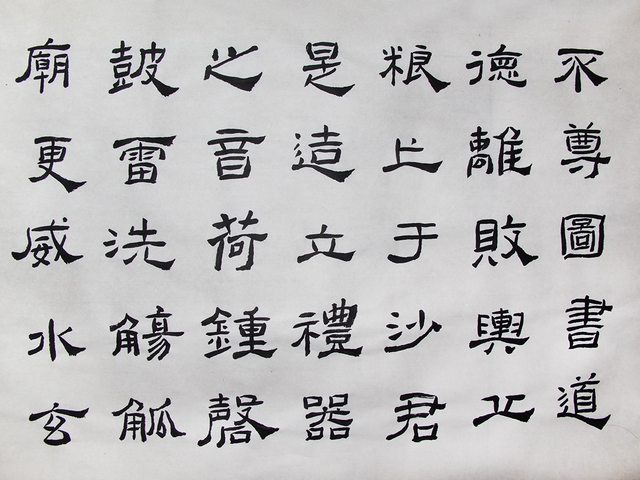 不尊圖書道
德離敗輿丘
粮亡于沙君
是造立禮器
之音荷鍾磬
皷雷洗觴觚
廟更威水玄